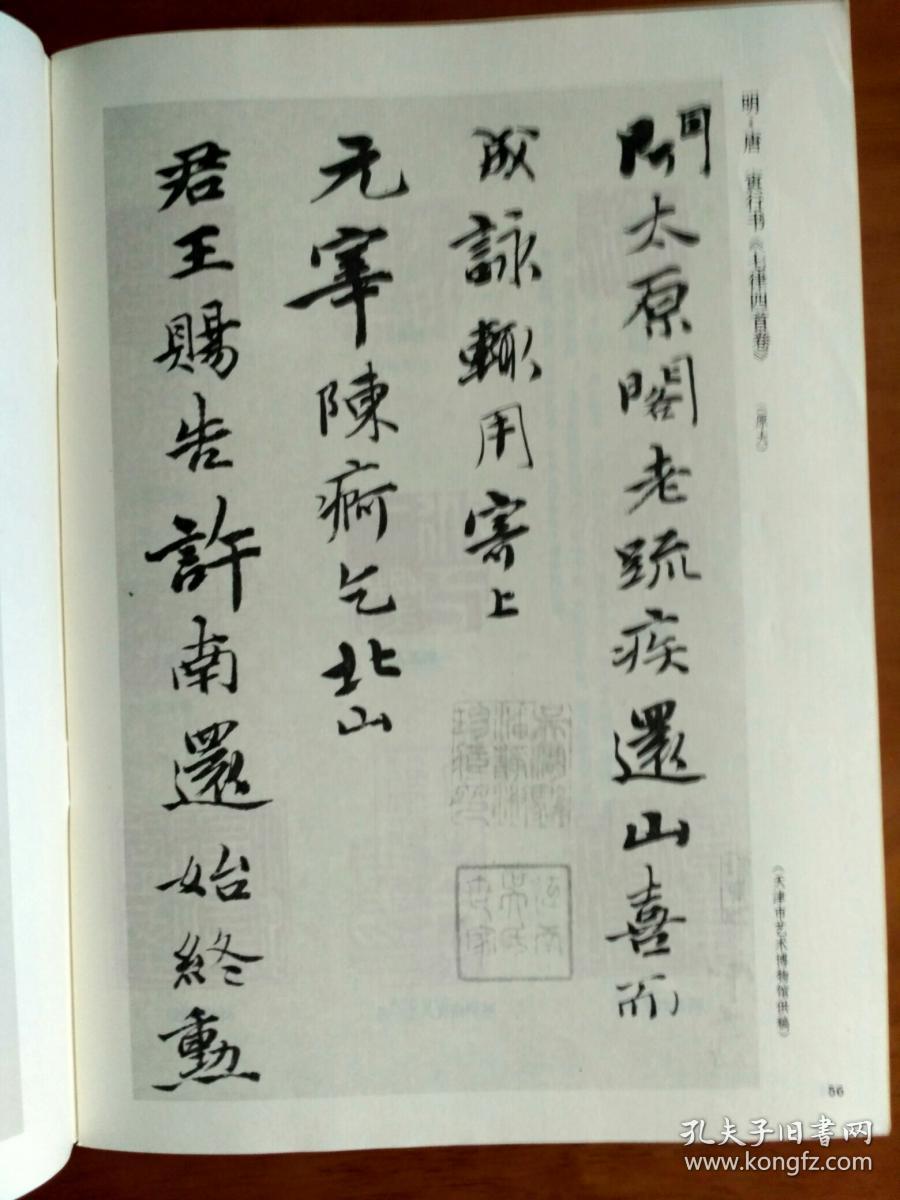 明·唐　寅行书《七律四首卷》
（原大）
（天津市艺术博物馆供稿）
聞太原閣老疏疾還山喜而
成詠輒用寄上
元宰陳痾乞北山
君王賜告許南還始終勳
吳湖颿
潘靜淑
珍藏印
56
孔夫子旧书网
www.kongfz.com